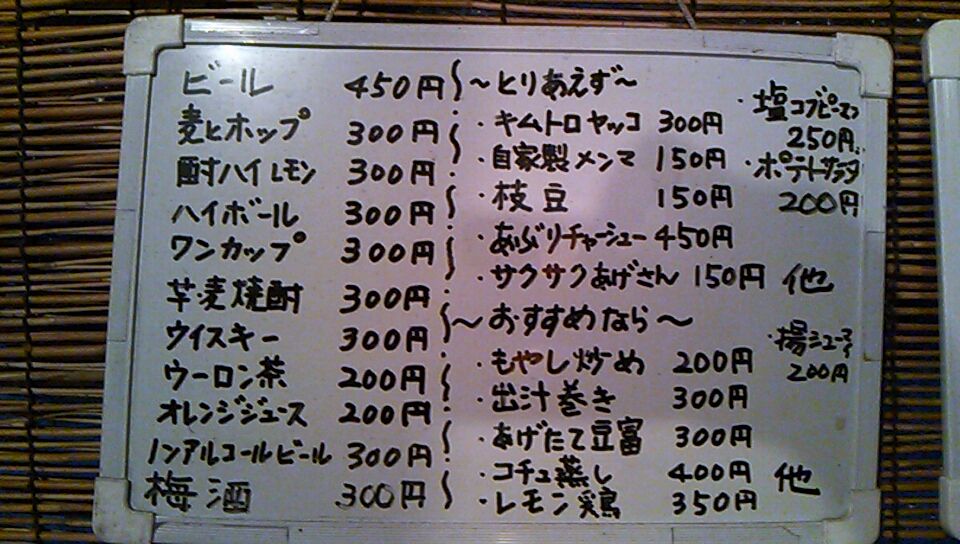 ビール 450円
麦とホップ 300円
酎ハイレモン 300円
ハイボール 300円
ワンカップ 300円
芋麦焼酎 300円
ウイスキー 300円
ウーロン茶 200円
オレンジジュース 200円
ノンアルコールビール 300円
梅酒 300円
～とりあえず～
・キムトロヤッコ 300円
・自家製メンマ 150円
・枝豆 150円
・あぶりチャーシュー 450円
・サクサクあげさん 150円 他
・塩コブピーマン
250円
・ポテトサラダ
200円
～おすすめなら～
・もやし炒め 200円
・出汁巻き 300円
・あげたて豆富 300円
・コチュ蒸し 400円 他
・レモン鶏 350円
・揚シューマイ
200円